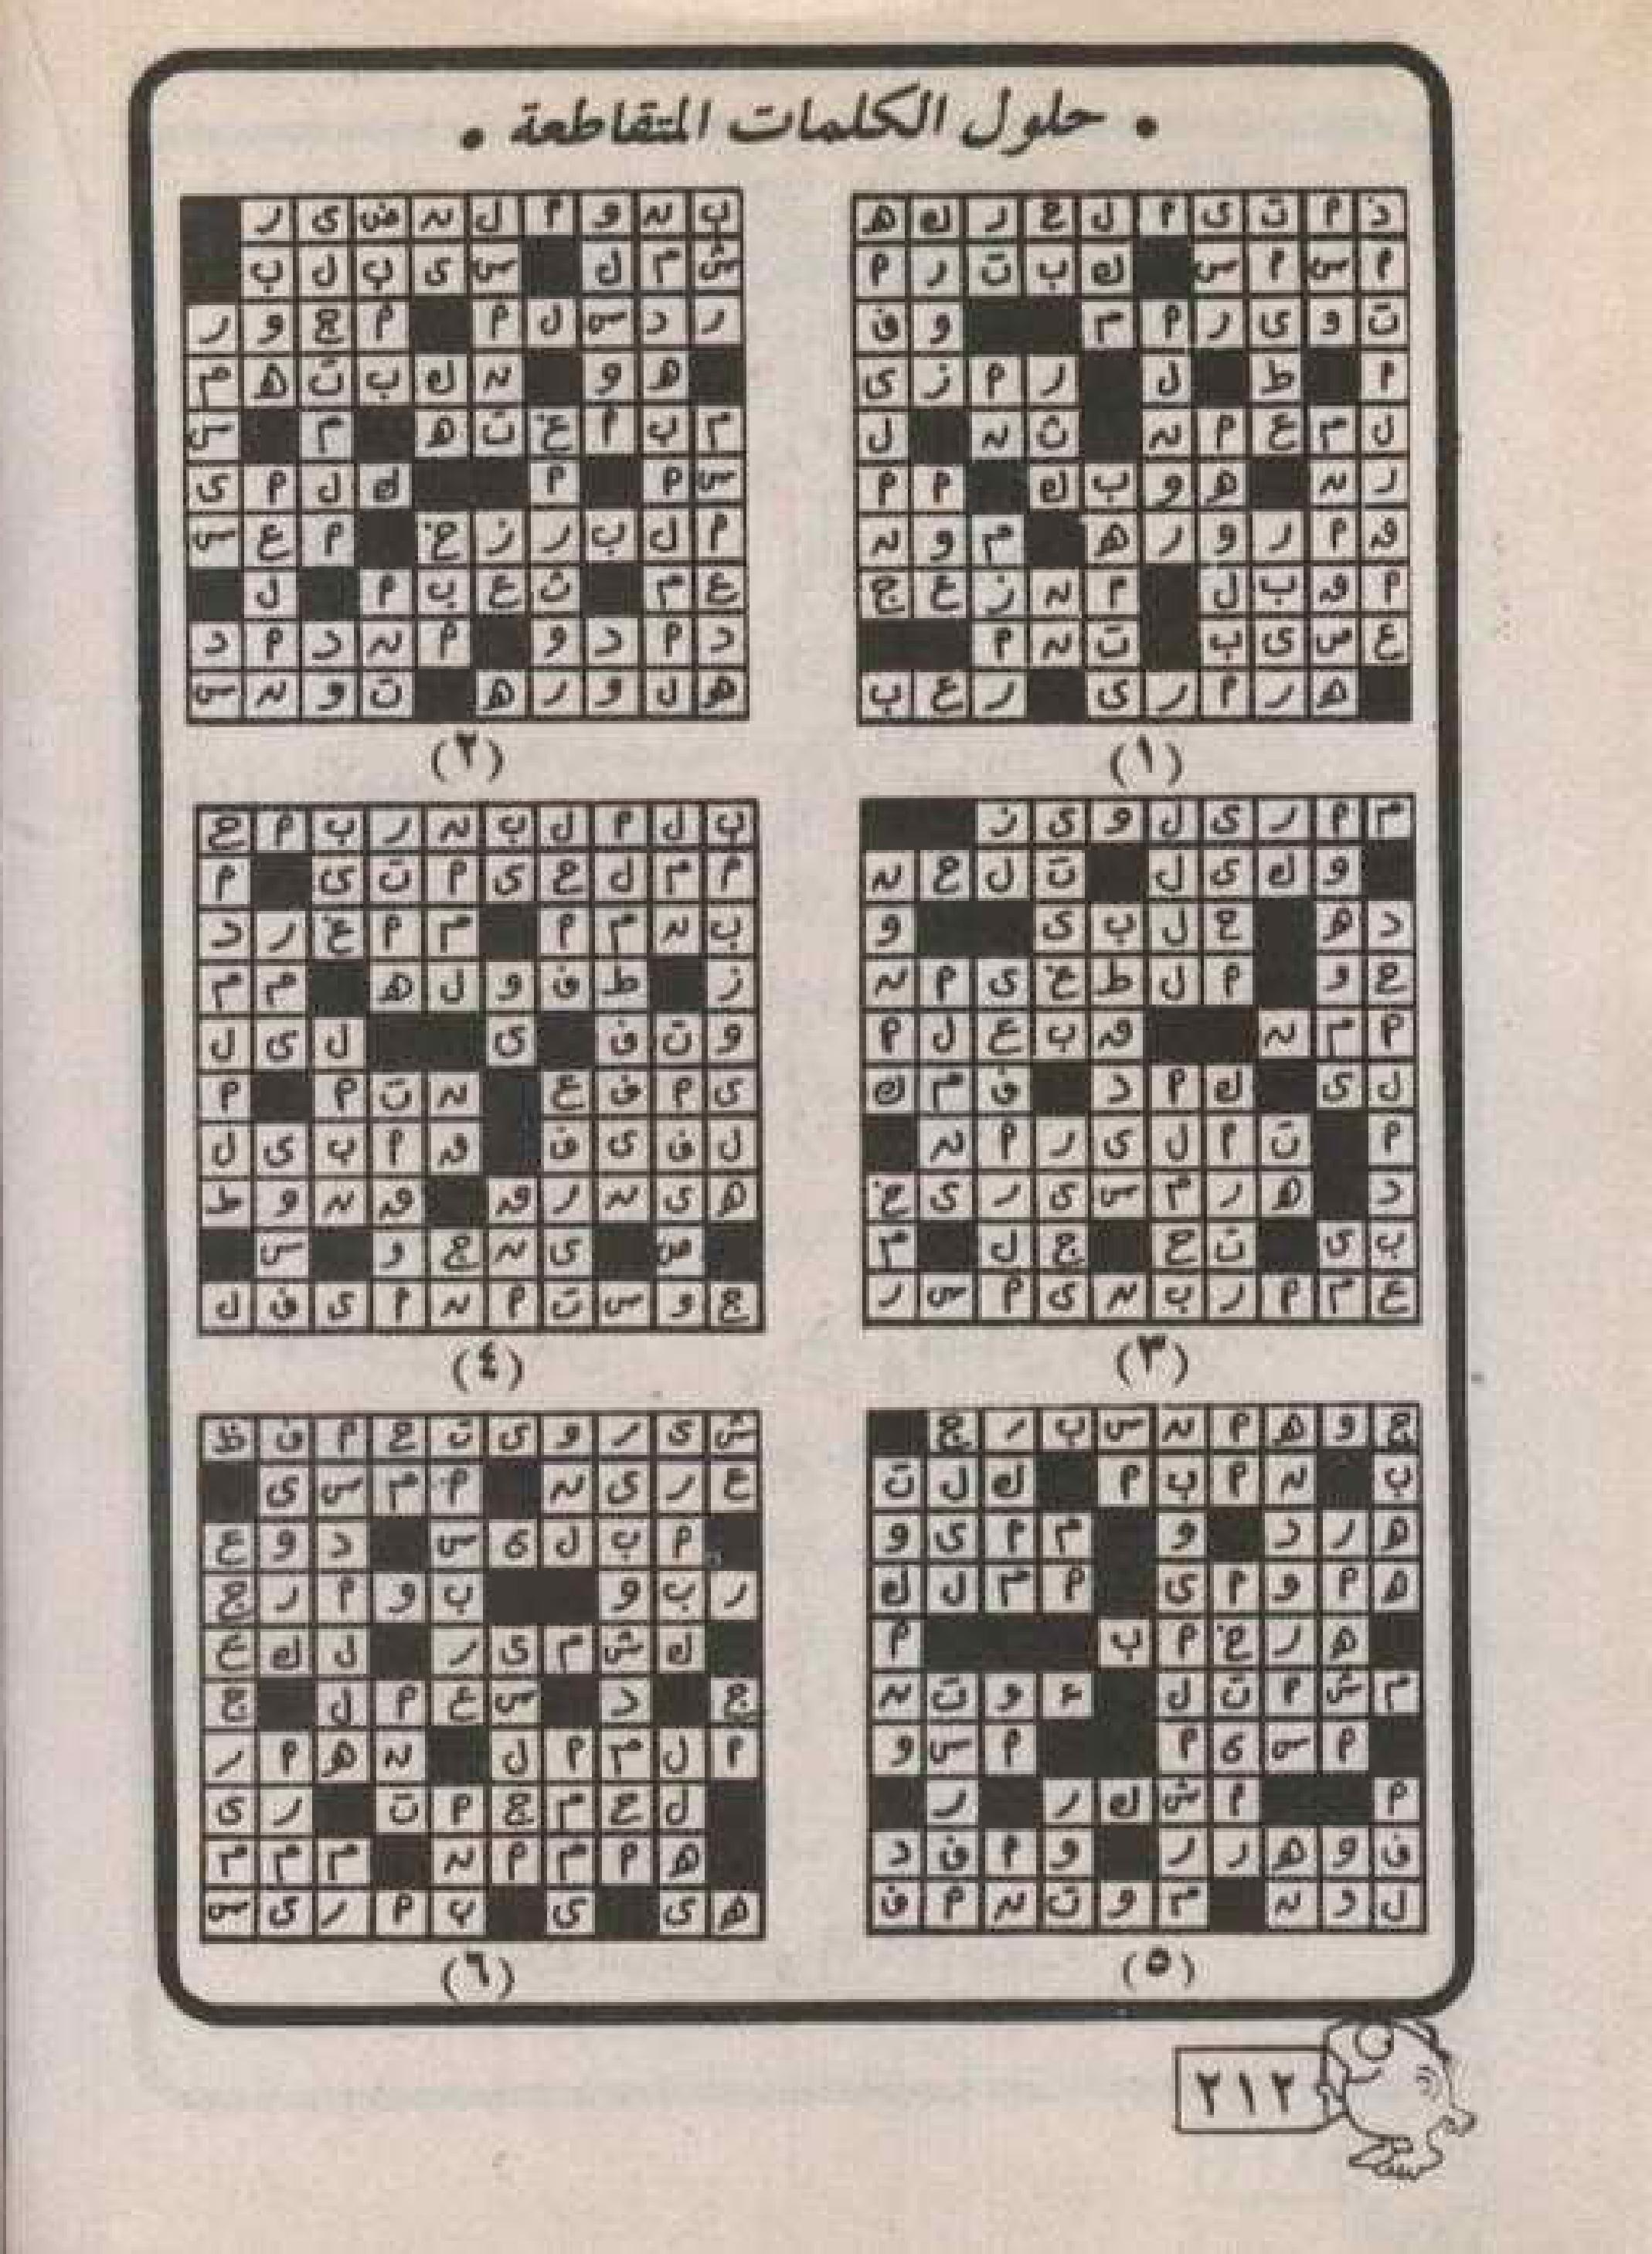 • حلول الكلمات المتقاطعة •
ذ ا ت ى ا ل ح ر ك ه
ا س ا س ك ب ت ر ا
ت و ى ر ا م و ف
ا ط ل ر ا ز ى
ل م ع ا ن ث ن ل
ر ن ه و ب ك ا ا
ق ا ر و ر ه م و ن
ا ق ب ل ا ن ز ع ج
ع ص ى ب ت ن ا
ه ر ا ر ى ر ع ب
(١)
ب ن و ا ل ن ض ى ر
ش م ل س ى ب ل ب
ر د س ل ا ا ج و ر
ه و ن ك ب ت ه م
م ب ا غ ت ه م س
س ا ا ك ل ا ى
ا ل ب ر ز خ ا ع س
ع م ث ع ب ا ل
د ا د و ا ن د ا د
ه ل و ر ه ت و ن س
(٢)
م ا ر ى ل و ى ز
و ك ى ل ت ل ح ن
د ه ح ل ب ى و
ح و ا ل ط غ ى ا ن
ا م ن ق ب ع ل ا
ل ى ك ا د ف م ك
ا ت ا ل ى ر ا ن
د ه ر م س ى ر ى خ
ب ى ث ح ج ل م
ع م ا ر ب ن ى ا س ر
(٣)
ب ل ا ل ب ن ر ب ا ح
ا م ل ح ى ا ت ى ا
ب ن م ا م ا غ ر د
ز ط ف و ل ه م م
و ت ف ى ل ى ل
ى ا ف ع ن ت ا ا
ل ف ى ف ق ا ب ى ل
ه ى ن ر ق ق ن و ط
ص ى ن ج و س
ج و س ت ا ن ا ى ف ل
(٤)
ج و ه ا ن س ب ر ج
ب ن ا ب ا ك ل ت
ه ر د و م ا ى و
ه ا و ا ى ا م ل ك
ه ر غ ا ب ا
م ش ا ت ل ء و ت ن
ا س ى ا ا س و
ا ا ش ك ر ر
ف و ه ر ر و ا ف د
ل د ن م و ت ن ا ف
(٥)
ش ى ر و ى ت ح ا ف ظ
ع ر ى ن ا م س ى
ا ب ل ى س د و ع
ر ب و ب و ا ر ج
ك ش م ى ر ل ك ع
ج د س ع ا ل ج
ا ل م ا ل ن ه ا ر
ل ح م ج ا ت ر ى
ه ا م ا ن م م م
ه ى ى ب ا ر ى س
(٦)
٢١٢